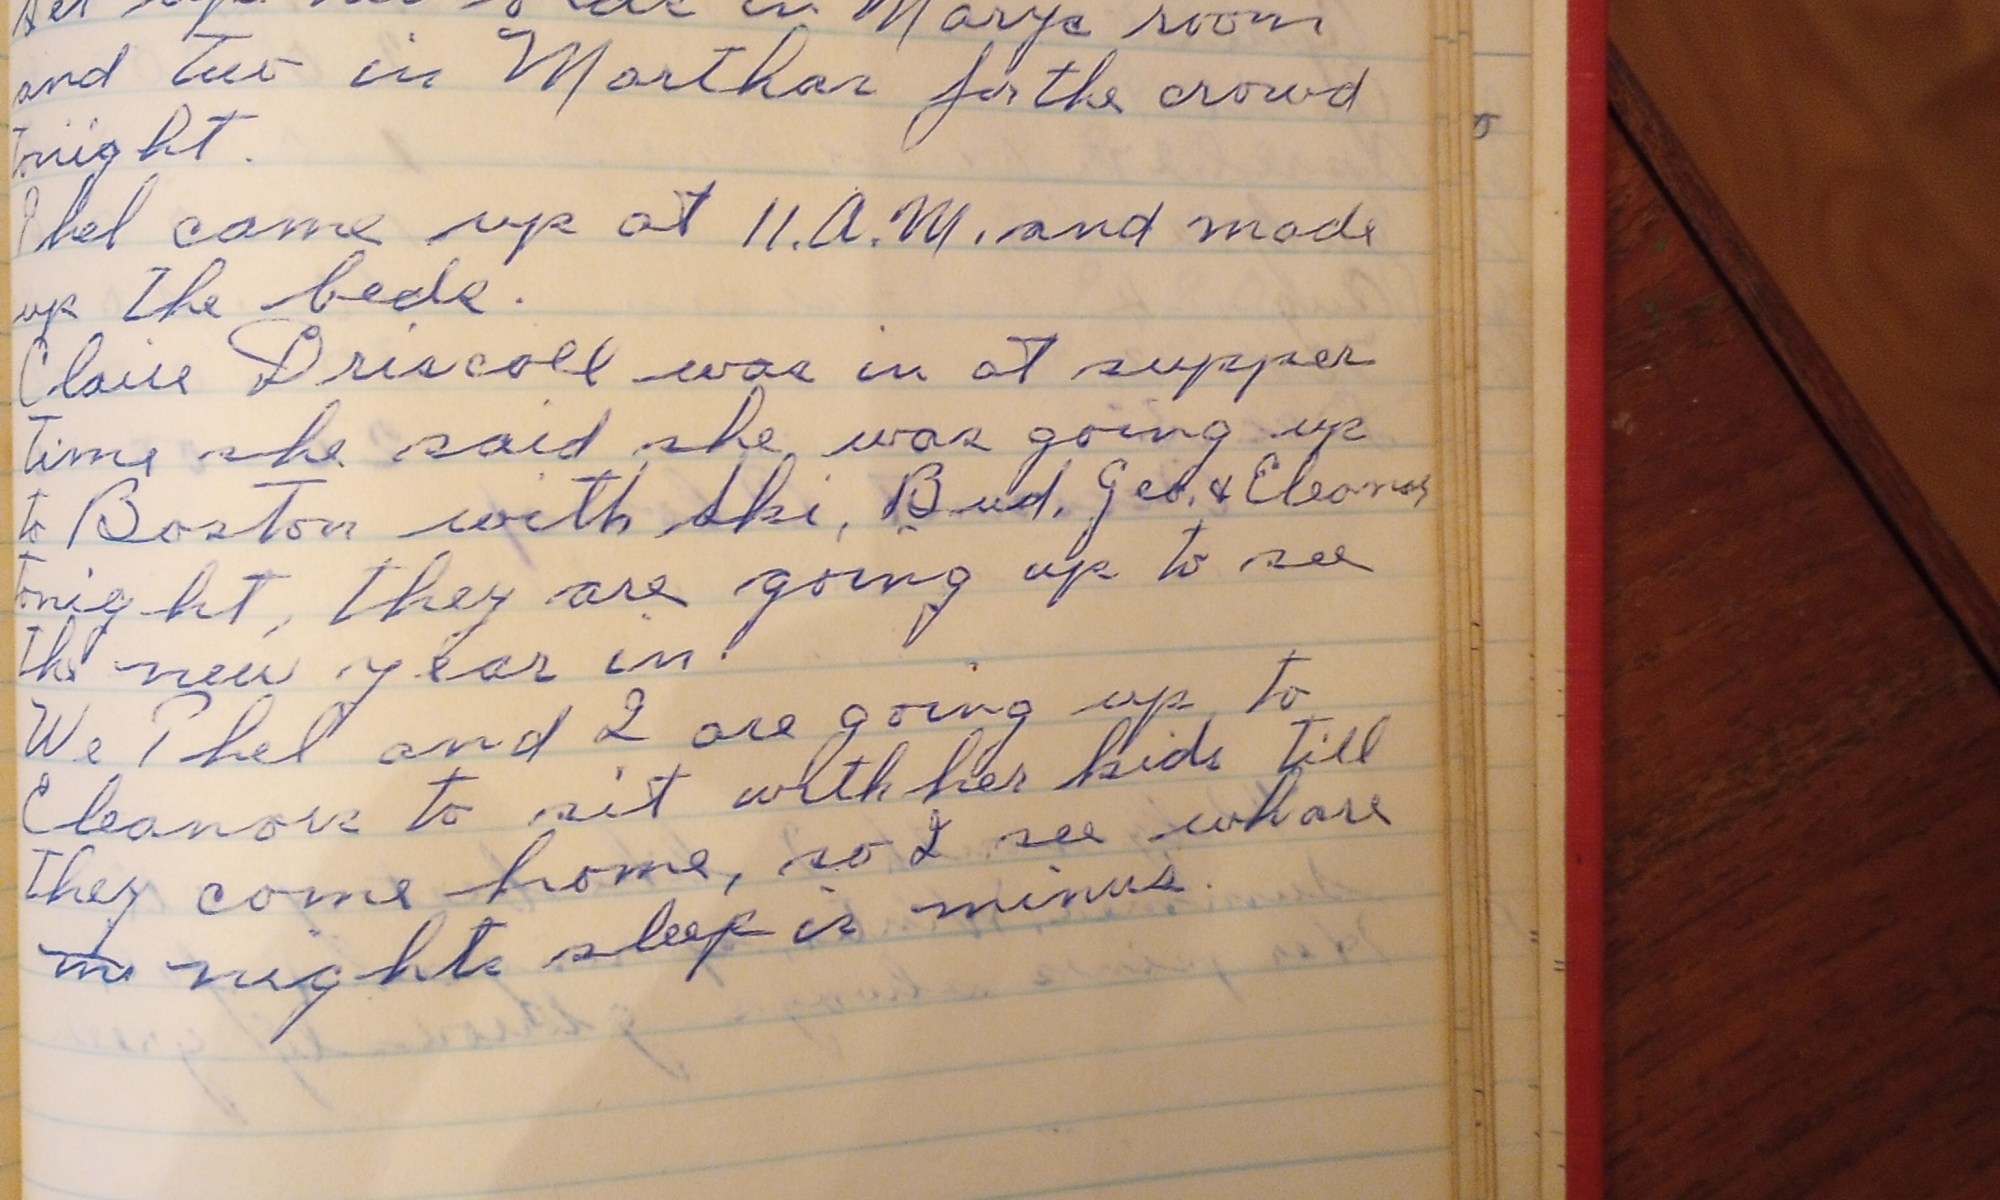 set up two beds in Marys room
and two in Marthas for the crowd
tonight.
Phel came up at 11.A.M. and made
up the beds.
Claire Driscoll was in at supper
time she said she was going up
to Boston with Ski, Bud, Geo. & Eleanor
tonight, they are going up to see
the new year in.
We Phel and I are going up to
Eleanors to sit with her kids till
they come home, so I see whare
my nights sleep is minus.